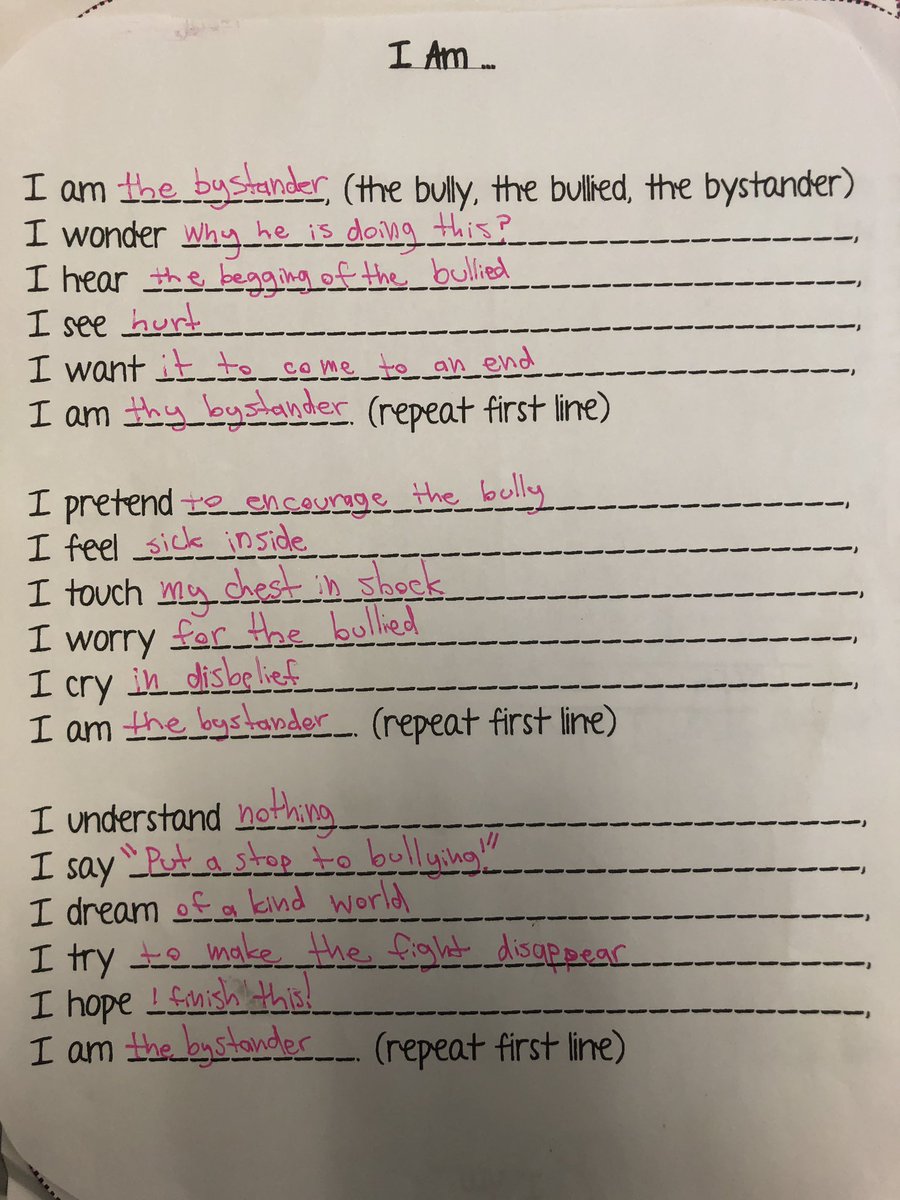 I Am ...
I am the bystander, (the bully, the bullied, the bystander)
I wonder why he is doing this?,
I hear the begging of the bullied,
I see hurt,
I want it to come to an end,
I am thy bystander. (repeat first line)
I pretend to encourage the bully,
I feel sick inside,
I touch my chest in shock,
I worry for the bullied,
I cry in disbelief,
I am the bystander. (repeat first line)
I understand nothing,
I say "Put a stop to bullying!",
I dream of a kind world,
I try to make the fight disappear,
I hope I finish this!,
I am the bystander. (repeat first line)